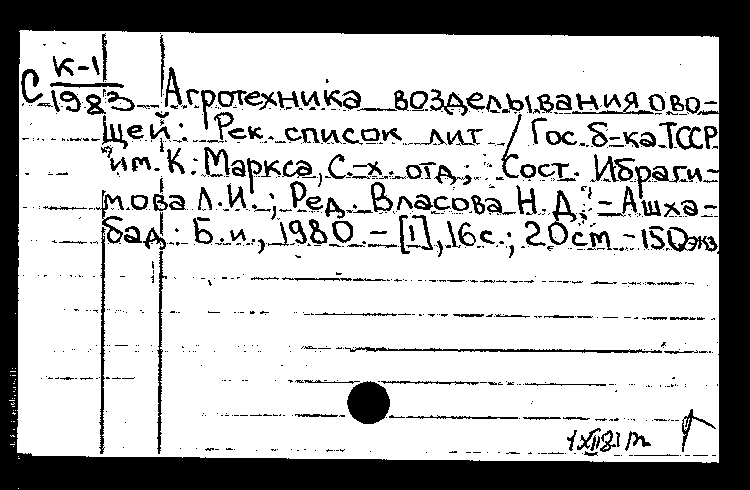 С К-1
1983 Агротехника возделывания ово-
щей: Рек. список лит / Гос. б-ка ТССР
им. К. Маркса, С.-х. отд.; Сост. Ибраги-
мова Л.И.; Ред. Власова Н.Д. - Ашха-
бад: Б.и., 1980 - [1], 16 с.; 20 см - 150 экз